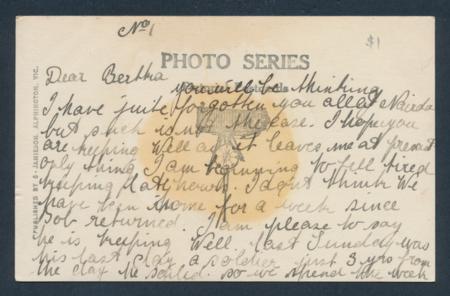 No 1
$1
PHOTO SERIES
Dear Bertha you will be thinking
I have quite forgotten you all at Nairda
but such is not the case. I hope you
are keeping well as it leaves me at present
only thing I am beginning to fell tired
keeping late hours. I dont think We
have been home for a week since
Bob returned. I am please to say
he is keeping Well. last Sunday was
his last day a soldier just 3 yrs from
the day he sailed. so we spend the week
PUBLISHED BY S. JAMIESON, ALPHINGTON, VIC.